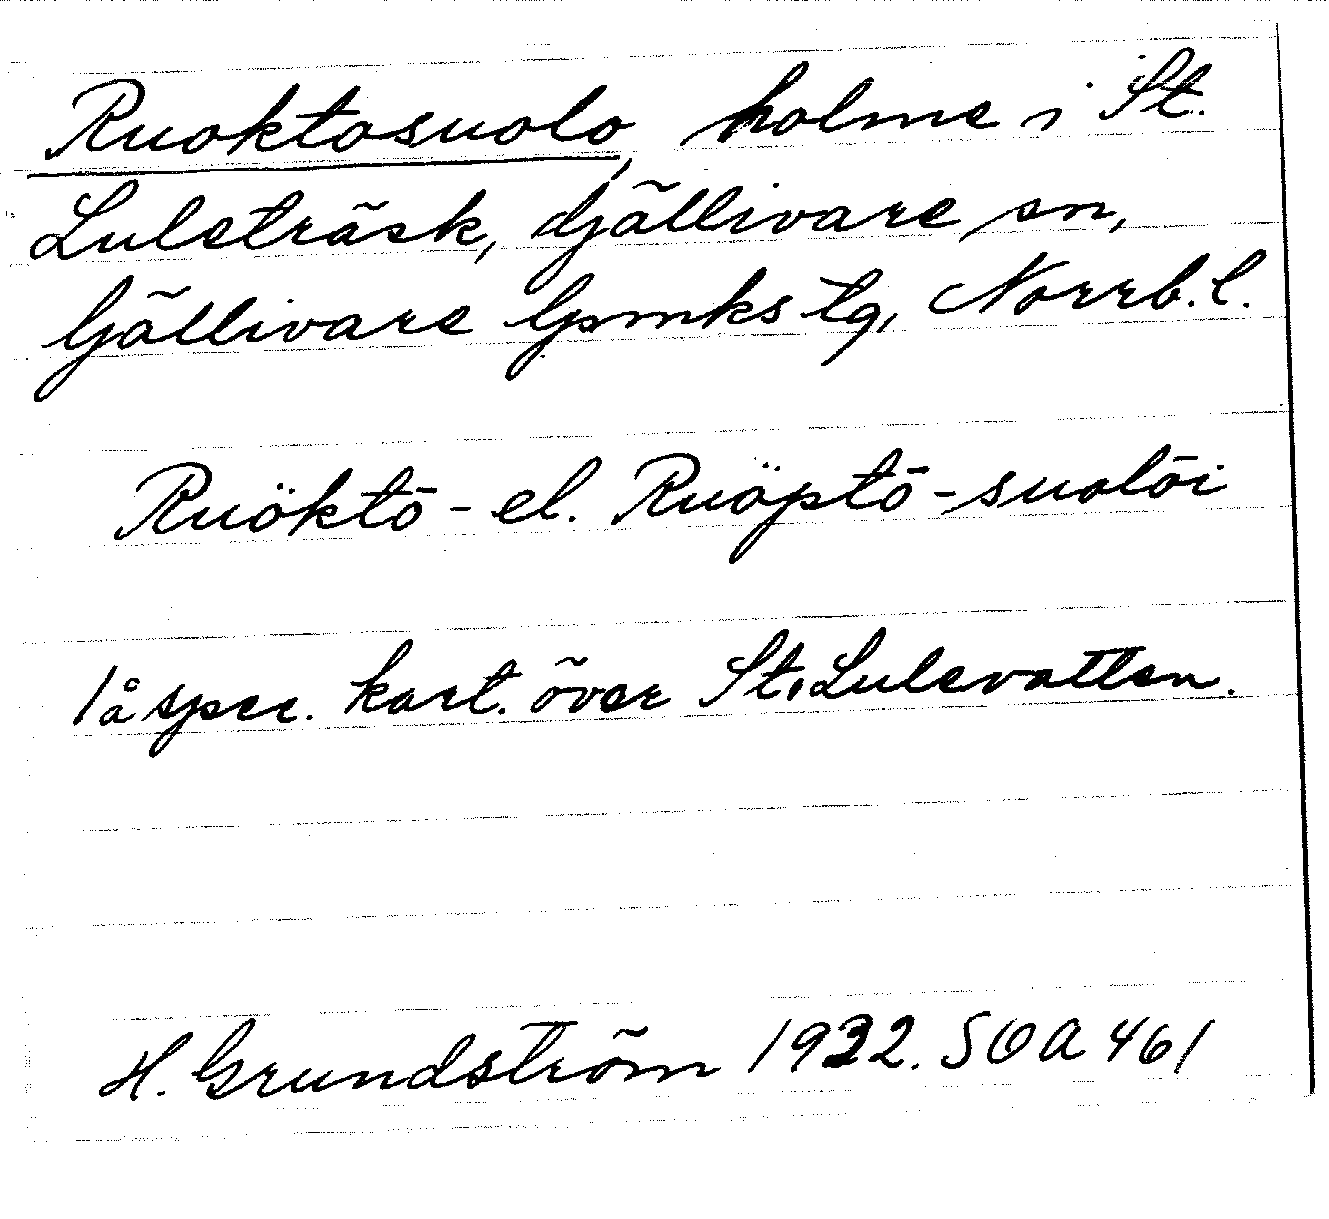 Ruoktosuolo, holme i St.
Luleträsk, Gjällivare sn,
Gjällivare lpmks tg, Norrb. l.
Ruöktō- el. Ruöptō-suolōi
/å spec. kart. över St. Lulevatten.
H. Grundström 1932. SOA 461